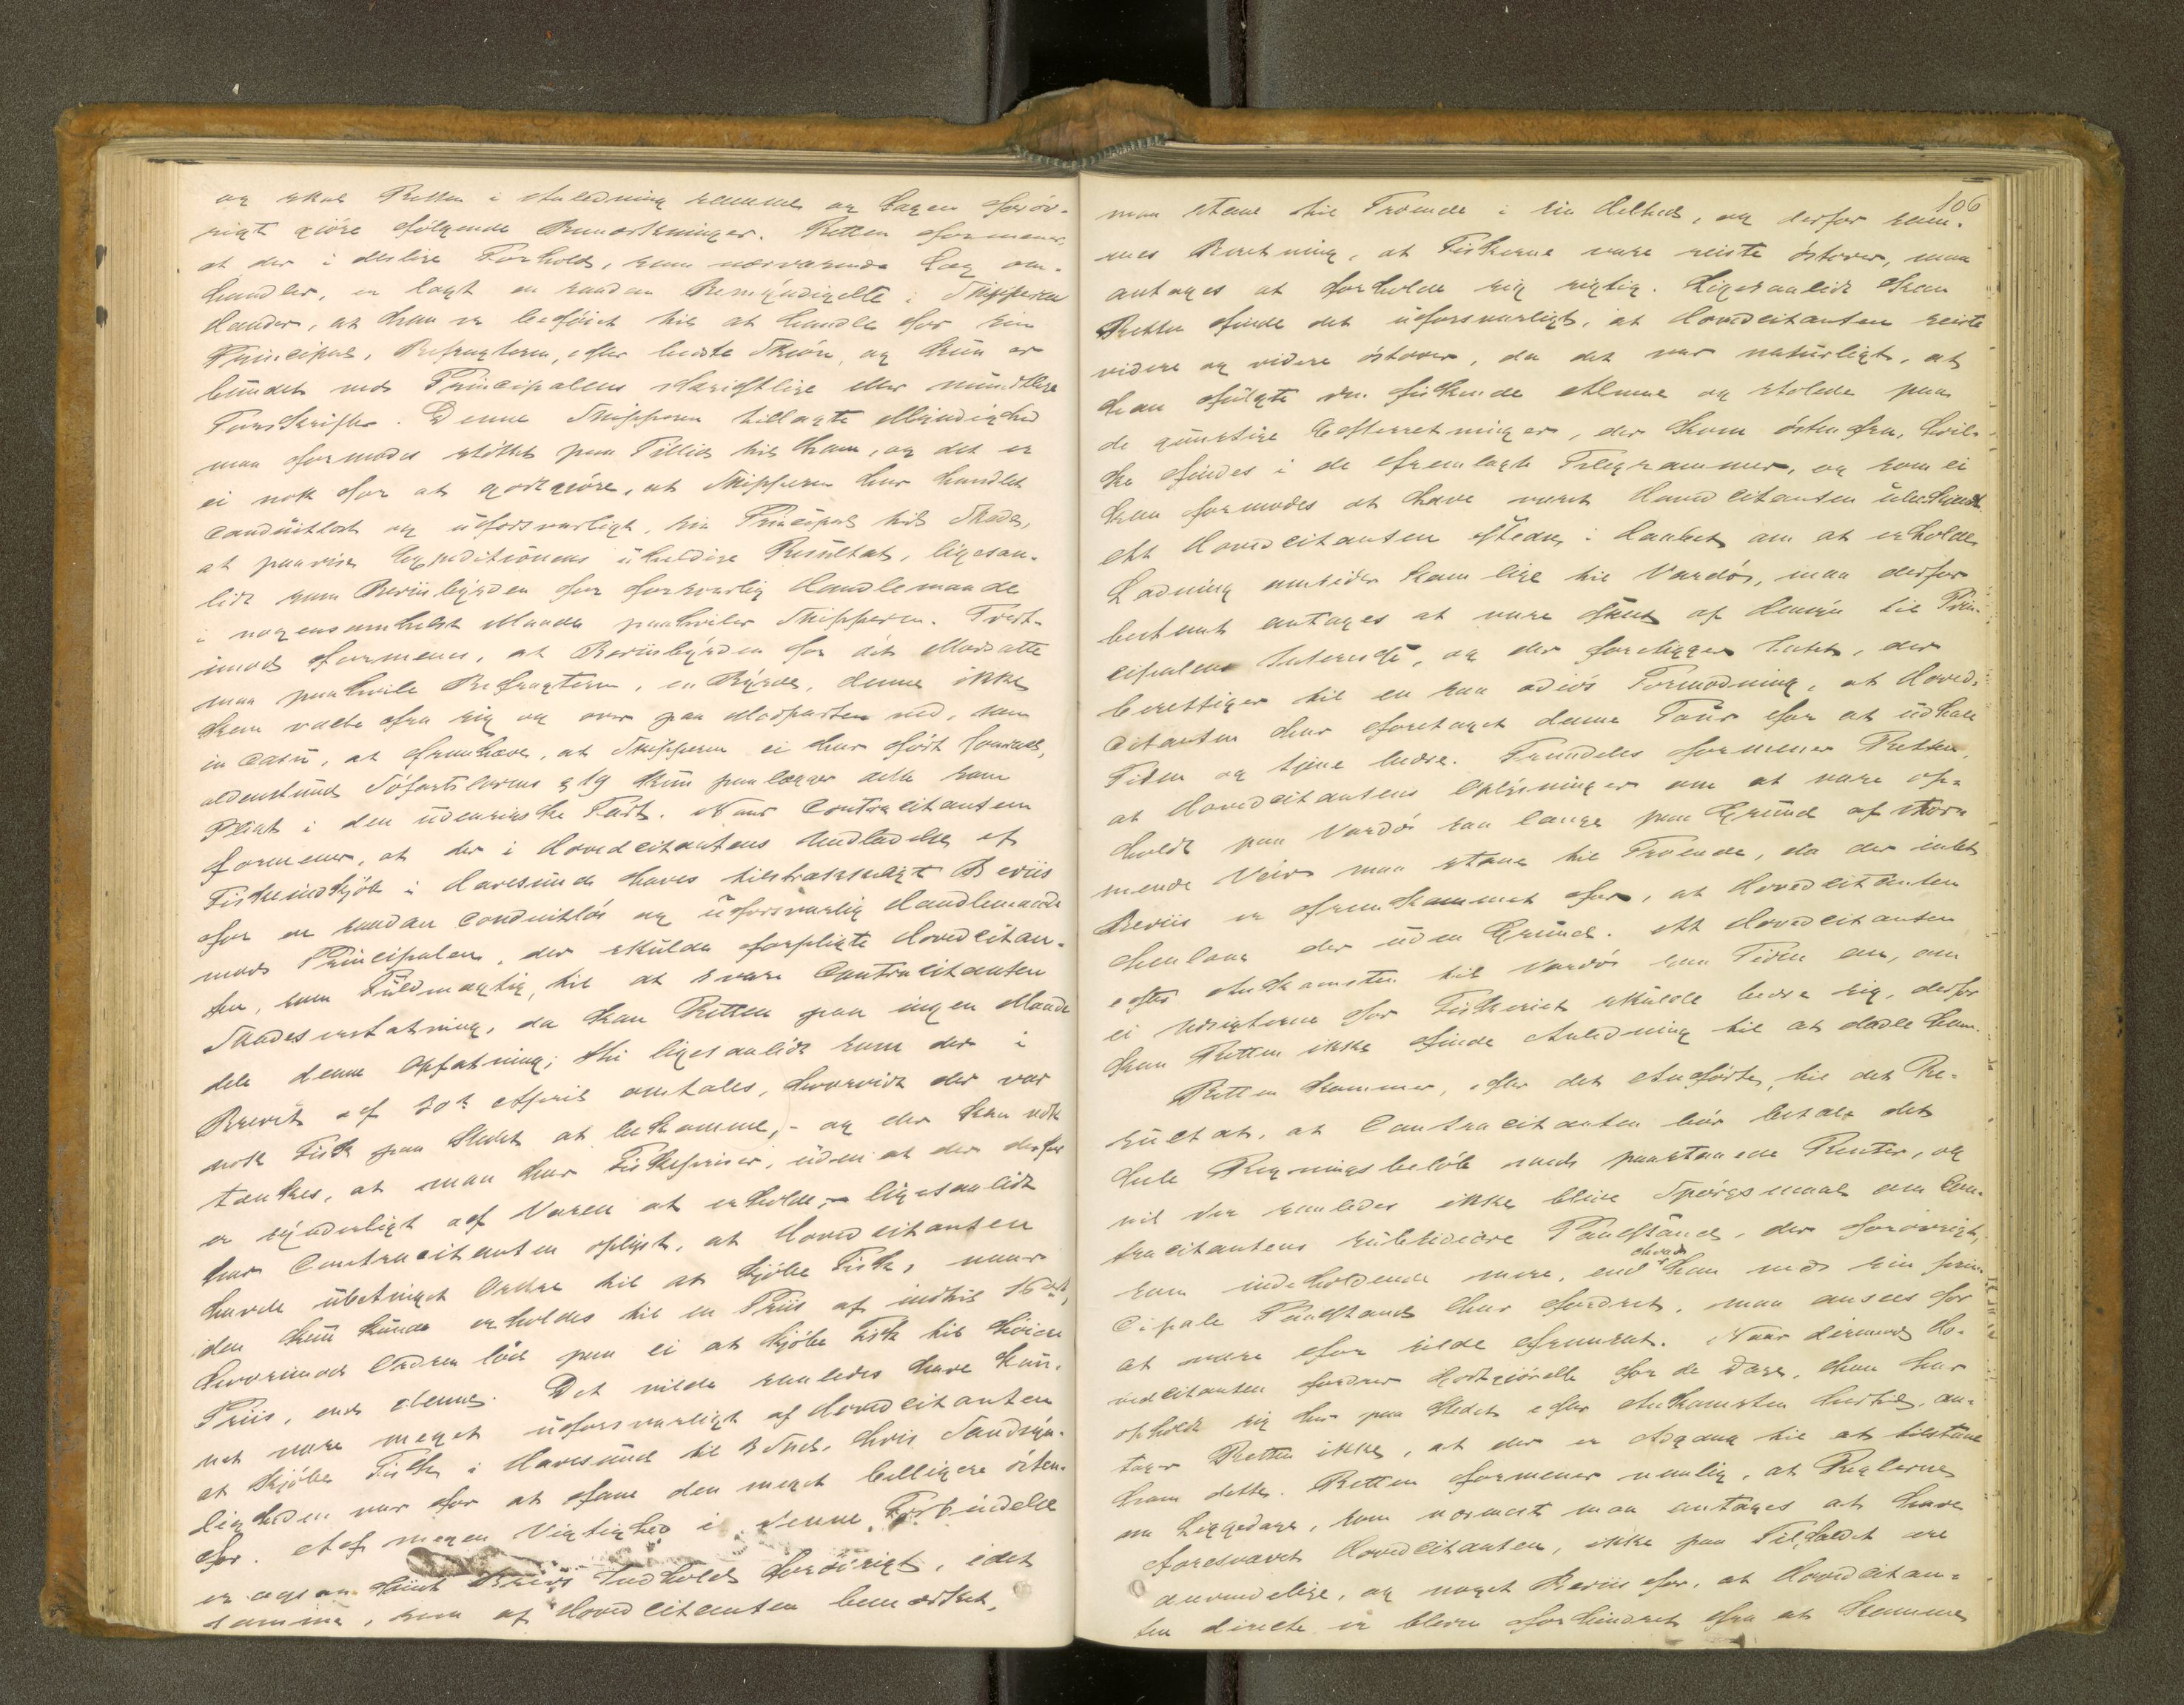 og skal Retten i Anledning samme og Sagen forøv-
rigt gjöre følgende Bemærkninger. Retten formener,
at der i deslige Forhold, som nærværende Sag om-
handler, er lagt en saadan Bemyndigelse i Skipperens
Hænder, at han er beføiet til at handle for sin
Principal, Befragteren, efter bedste Skjön, og kun er
bundet ved Principalens skriftlige eller mundtlige
Forskrifter. Denne Skipperen tillagte Myndighed
maa formodes støttet paa Tillid til ham, og det er
ei nok for at godtgjøre, at Skipperen har handlet
conduitløst og uforsvarligt, sin Principal til Skade,
at paavise Expeditionens uheldige Resultat, ligesaa-
lidt som Beviisbyrden for forsvarlig Handlemaade
i nogensomhelst Maade paahviler Skipperen. Tvert-
imod formenes, at Beviisbyrden for det Modsatte
maa paahvile Befragteren, en Byrde, denne ikke
kan vælte fra sig og over paa Modparten ved, som
in casu, at fremhæve, at Skipperen ei har ført Journal,
aldenstund Söfartslovens § 19 kun paalægger dette som
Pligt i den udenrigske Fart. Naar Contracitanten
formener, at der i Hovedcitantens Undladelse af
Fiskeindkjöb i Havesund haves tilstrækkeligt Beviis
for en saadan conduitløs og uforsvarlig Handlemaade
mod Principalen, der skulde forpligte Hovedcitan-
ten, som Fuldmægtig, til at svare Contracitanten
Skadeserstatning, da kan Retten paa ingen Maade
dele denne Opfatning; thi ligesaalidt som der i
Brevet af 30te April omtales, hvorvidt der var
nok Fisk paa Stedet at bekomme, - og der kan nok
tænkes, at man har Fiskepriser, uden at der derfor
er synderligt af Varen at erholde, - ligesaalidt
har Contracitanten oplyst, at Hovedcitanten
havde ubetinget Ordre til at kjøbe Fisk, naar
den kun kunde erholdes til en Priis af indtil 16 ort,
hvorimod Ordren lød paa ei at kjøbe Fisk til høiere
Priis, end denne. Det vilde saaledes have kun-
net være meget uforsvarligt af Hovedcitanten
at kjøbe Fisk i Havesund til 3 Tred. hvis Sandsyn-
ligheden var for at faae den meget billigere østen-
for. Af megen Vigtighed i denne Forbindelse
er ogsaa Brevs Indhold forøvrigt, idet
samme, som af Hovedcitanten bemærket,
106
maa staae til Troende i sin Helhed, og derfor sam-
mes Beretning, at Fiskerne vare reiste østover, maa
antages at forholde sig rigtig. Ligesaalidt kan
Retten finde det uforsvarligt, at Hovedcitanten reiste
videre og videre østover, da det var naturligt, at
han fulgte den fiskende Almue og stolede paa
de gunstige Efterretninger, der kom østenfra, hvil-
ke findes i de fremlagte Telegrammer, og som ei
kan formodes at have været Hovedcitanten ubekjendt.
At Hovedcitanten i Haabet om at erholde
Ladning omsider kom lige til Vardø, maa derfor
bestemt antages at være skeet af Hensyn til Prin-
cipalens Interesse, og der foreligger Intet, der
berettiger til en saa odiøs Formodning, at Hoved-
citanten har foretaget denne Tour for at udhale
Tiden og tjene bedre. Fremdeles formener Retten,
at Hovedcitantens Oplysninger om at være op-
holdt paa Vardø saa længe paa Grund af stor-
mende Veir maa staae til Troende, da der intet
Beviis er fremkommet for, at Hovedcitanten
henlaae der uden Grund. At Hovedcitanten
efter Ankomsten til Vardø saa Tiden an, om
ei Udsigterne for Fiskeriet skulde bedre sig, derfor
kan Retten ikke finde Anledning til at dadle ham.
Retten kommer, efter det Anførte, til det Re-
sultat, at Contracitanten bør betale det
hele Regningsbeløb med paastaaede Renter, og
vil der saaledes ikke blive Spørgsmaal om Con-
tracitantens subsidiære Paastand, der forøvrigt,
som indeholdende mere, end hvad han ved sin prin-
cipale Paastand har fordret, maa ansees for
at være for silde fremsat. Naar derimod Ho-
vedcitanten fordrer Godtgjørelse for de Dage, han har
opholdt sig her paa Stedet efter Ankomsten hertil, an-
tager Retten ikke, at der er Adgang til at tilstaae
ham dette. Retten formener nemlig, at Reglerne
om Liggedage, som nærmest maa antages at have
foresvævet Hovedcitanten, ikke paa Tilfældet ere
anvendelige, og noget Beviis for, at Hovedcitan-
ten directe er bleven forhindret fra at komme